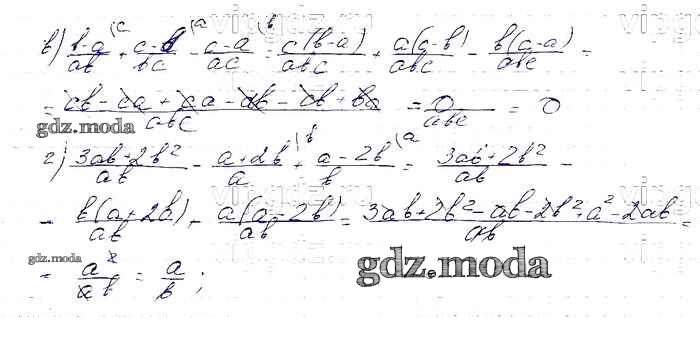 в) (b-a)/ab + (c-b)/bc - (c-a)/ac = c(b-a)/abc + a(c-b)/abc - b(c-a)/abc =
= (cb - ca + ca - ab - cb + ba)/abc = 0/abc = 0
gdz.moda
г) (3ab+2b²)/ab - (a+2b)/a + (a-2b)/b = (3ab+2b²)/ab -
- b(a+2b)/ab + a(a-2b)/ab = (3ab+2b²-ab-2b²+a²-2ab)/ab =
gdz.moda
gdz.moda
= a²/ab = a/b ;